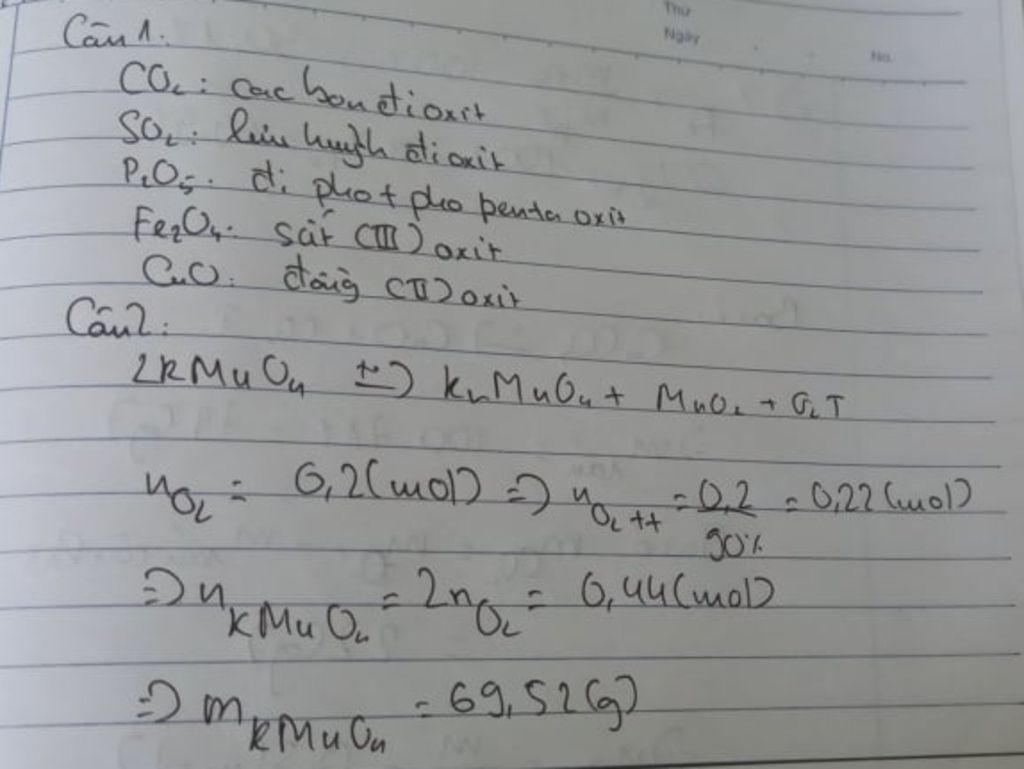 Thứ
Ngày
No.
Câu 1.
CO₂: cac bon đi oxit
SO₂: lưu huỳnh đi oxit
P₂O₅. đi pho t pho penta oxit
Fe₂O₄. sắt (III) oxit
CuO. đồng (II) oxit
Câu 2:
2KMnO₄ =t°=> K₂MnO₄ + MnO₂ + O₂↑
nO₂ = 0,2(mol) => nO₂ tt = 0,2/90% = 0,22(mol)
=> nKMnO₄ = 2nO₂ = 0,44(mol)
=> mKMnO₄ = 69,52(g)